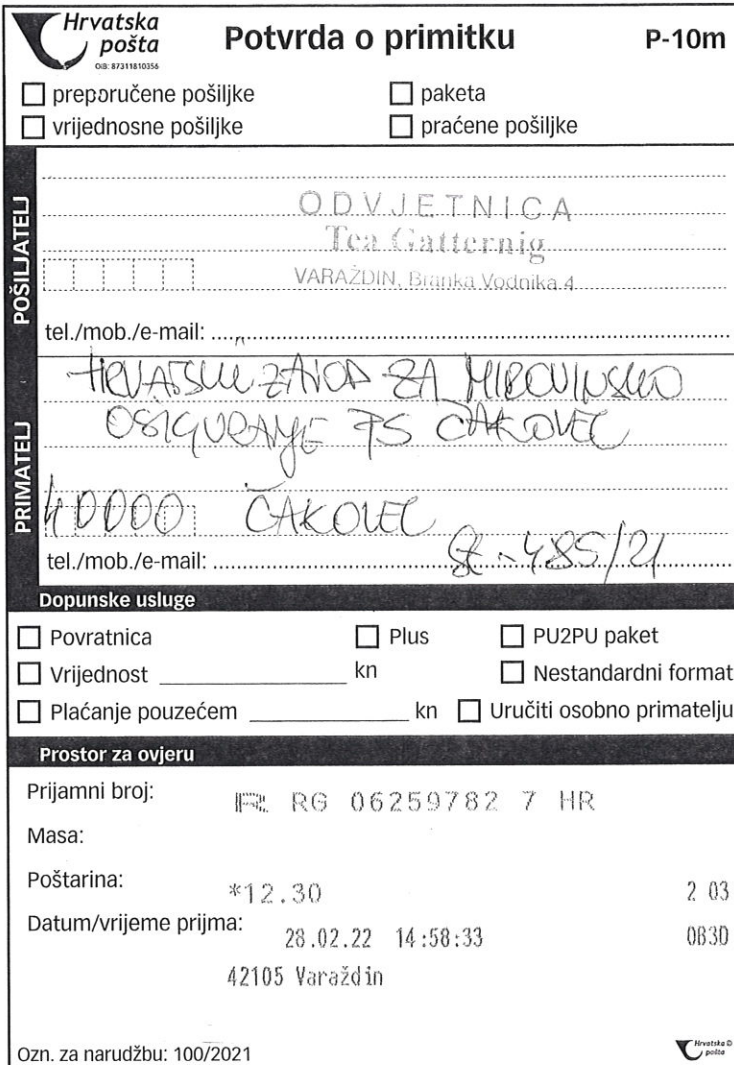 Hrvatska
pošta
OIB: 87311810356
Potvrda o primitku
P-10m
preporučene pošiljke
paketa
vrijednosne pošiljke
praćene pošiljke
POŠILJATELJ
ODVJETNICA
Tea Gatternig
VARAŽDIN, Branka Vodnika 4
tel./mob./e-mail:
PRIMATELJ
HRVATSKI ZAVOD ZA MIROVINSKO
OSIGURANJE PS ČAKOVEC
40000 ČAKOVEC
tel./mob./e-mail: St-485/21
Dopunske usluge
Povratnica
Plus
PU2PU paket
Vrijednost kn
Nestandardni format
Plaćanje pouzećem kn
Uručiti osobno primatelju
Prostor za ovjeru
Prijamni broj: R RG 06259782 7 HR
Masa:
Poštarina: *12.30 2 03
Datum/vrijeme prijma: 28.02.22 14:58:33 0B30
42105 Varaždin
Ozn. za narudžbu: 100/2021
Hrvatska
pošta